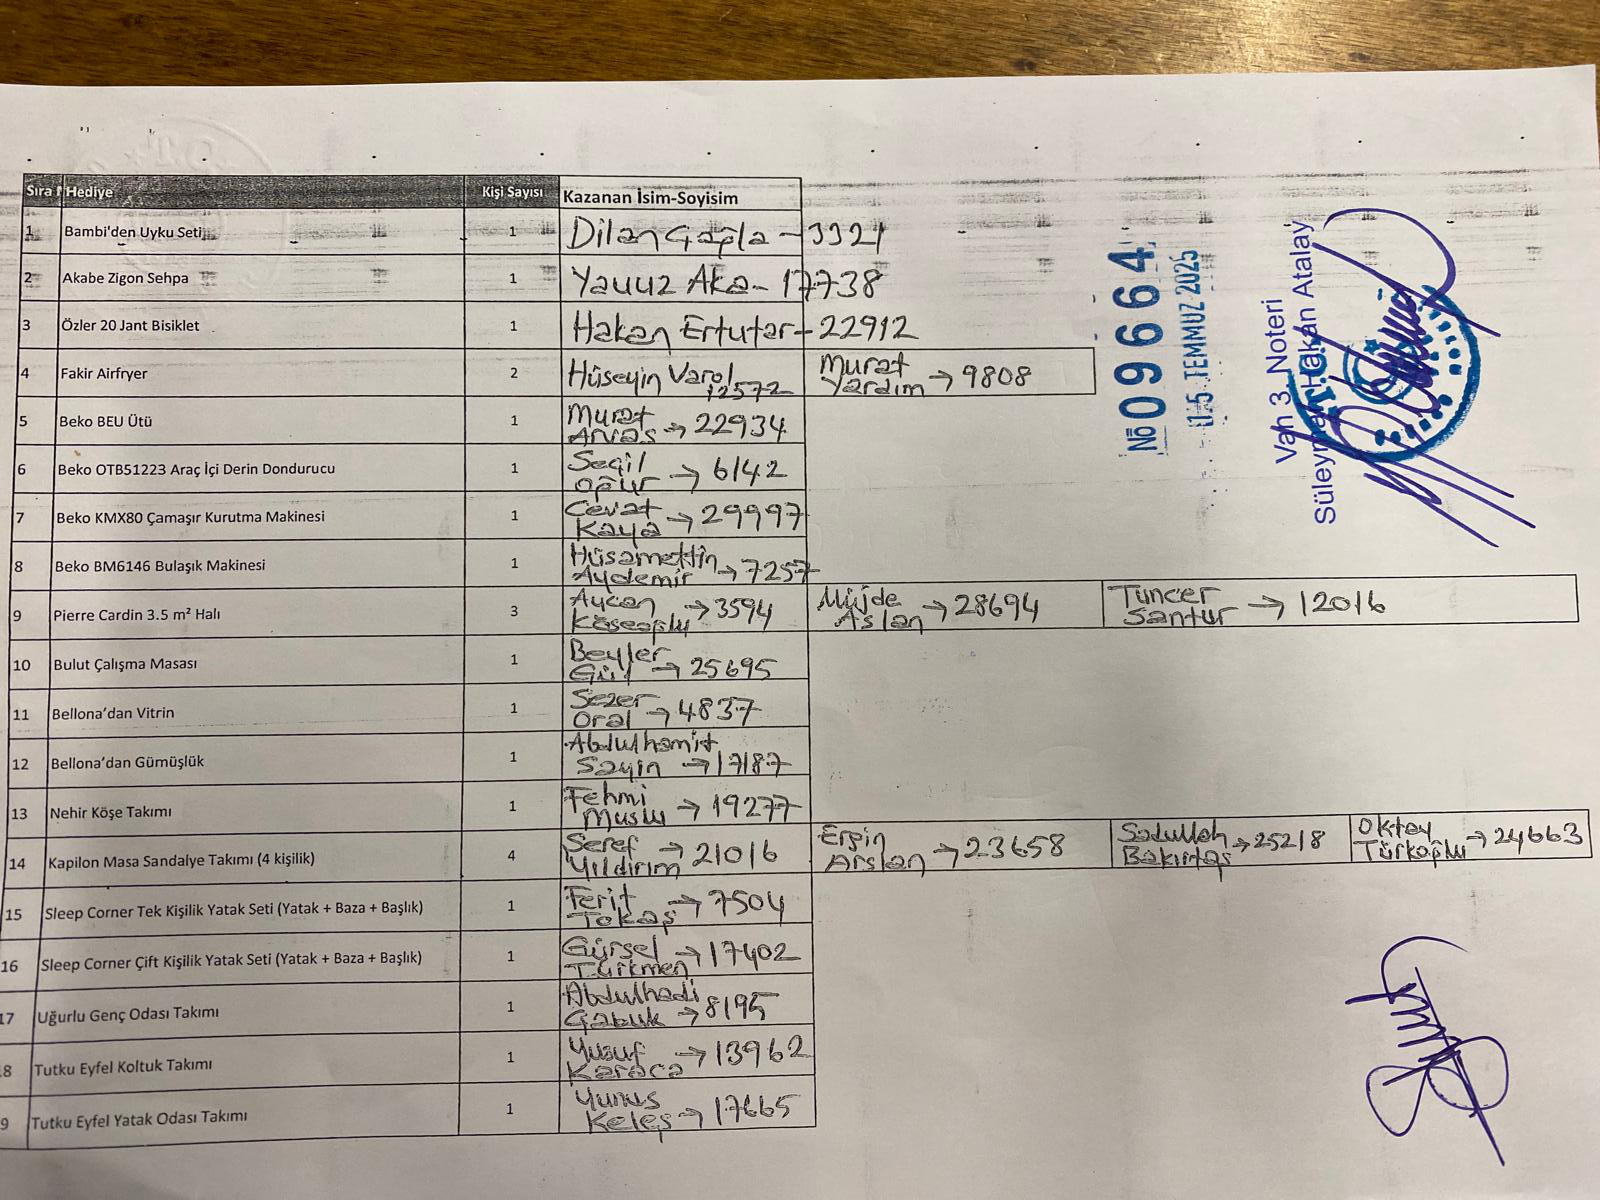 Sıra Hediye Kişi Sayısı Kazanan İsim-Soyisim
1 Bambi'den Uyku Seti 1 Dilan Çağla - 3321
2 Akabe Zigon Sehpa 1 Yavuz Aka - 17738
3 Özler 20 Jant Bisiklet 1 Hakan Ertutar - 22912
4 Fakir Airfryer 2 Hüseyin Varol 12572 Murat Yardım → 9808
5 Beko BEU Ütü 1 Murat Arvas → 22934
6 Beko OTB51223 Araç İçi Derin Dondurucu 1 Seçil Oğur → 6142
7 Beko KMX80 Çamaşır Kurutma Makinesi 1 Cevat Kaya → 29997
8 Beko BM6146 Bulaşık Makinesi 1 Hüsamettin Aydemir → 7257
9 Pierre Cardin 3.5 m² Halı 3 Aycan Köseoğlu → 3594 Müjde Aslan → 28694 Tuncer Santur → 12016
10 Bulut Çalışma Masası 1 Beyler Gül → 25695
11 Bellona'dan Vitrin 1 Sezer Oral → 4837
12 Bellona'dan Gümüşlük 1 Abdulhamit Sayin → 17187
13 Nehir Köşe Takımı 1 Fehmi Muslu → 19277
14 Kapilon Masa Sandalye Takımı (4 kişilik) 4 Şeref Yıldırım → 21016 Ersin Arslan → 23658 Sadullah Bakırtaş → 25218 Oktay Türkoğlu → 24663
15 Sleep Corner Tek Kişilik Yatak Seti (Yatak + Baza + Başlık) 1 Ferit Tokaş → 7504
16 Sleep Corner Çift Kişilik Yatak Seti (Yatak + Baza + Başlık) 1 Gürsel Türkmen → 17402
17 Uğurlu Genç Odası Takımı 1 Abdulhadi Çabuk → 8195
8 Tutku Eyfel Koltuk Takımı 1 Yusuf Karaca → 13962
9 Tutku Eyfel Yatak Odası Takımı 1 Yunus Keleş → 17665
№ 09664
15 TEMMUZ 2025
Van 3. Noteri
Süleyman Hakan Atalay